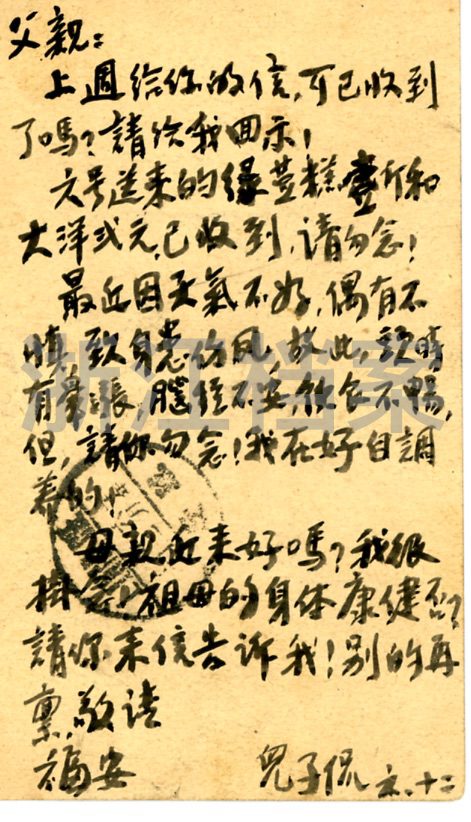 父親：
上週給你的信，可已收到
了嗎？請給我回示！
六号送来的绿荳糕壹斤和
大洋弍元，已收到，请勿念！
最近因天氣不好，偶有不
慎，致身患伤风，故此，頭時
有暈漲，腦经不安，飲食不暢，
但，請你勿念！我在好自調
养的！
母親近来好嗎？我很
掛念！祖母的身体康健否？
請你来信告诉我！别的再
禀，敬請
福安
兒子侃 六.十二
浙江档案